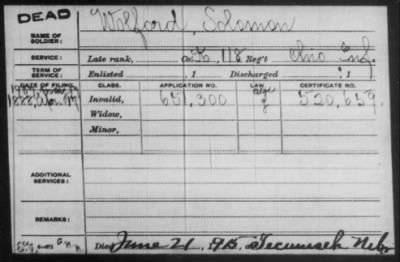 DEAD
NAME OF SOLDIER: Wolford, Solomon
SERVICE: Late rank, Co. K, 118 Reg't Ohio Inf.
TERM OF SERVICE: Enlisted , 1 Discharged , 1
DATE OF FILING. CLASS. APPLICATION NO. LAW. CERTIFICATE NO.
1888, Apr. Invalid, 651,300 520,659
Widow,
Minor,
ADDITIONAL SERVICES:
REMARKS:
Died June 21, 1915, Tecumseh Neb